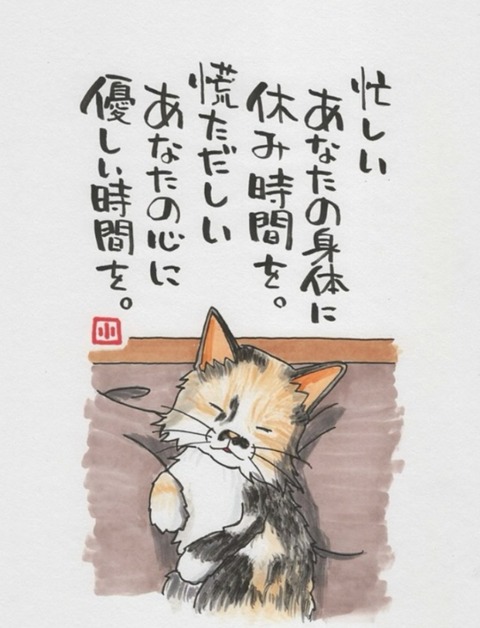 忙しい
あなたの身体に
休み時間を。
慌ただしい
あなたの心に
優しい時間を。
小